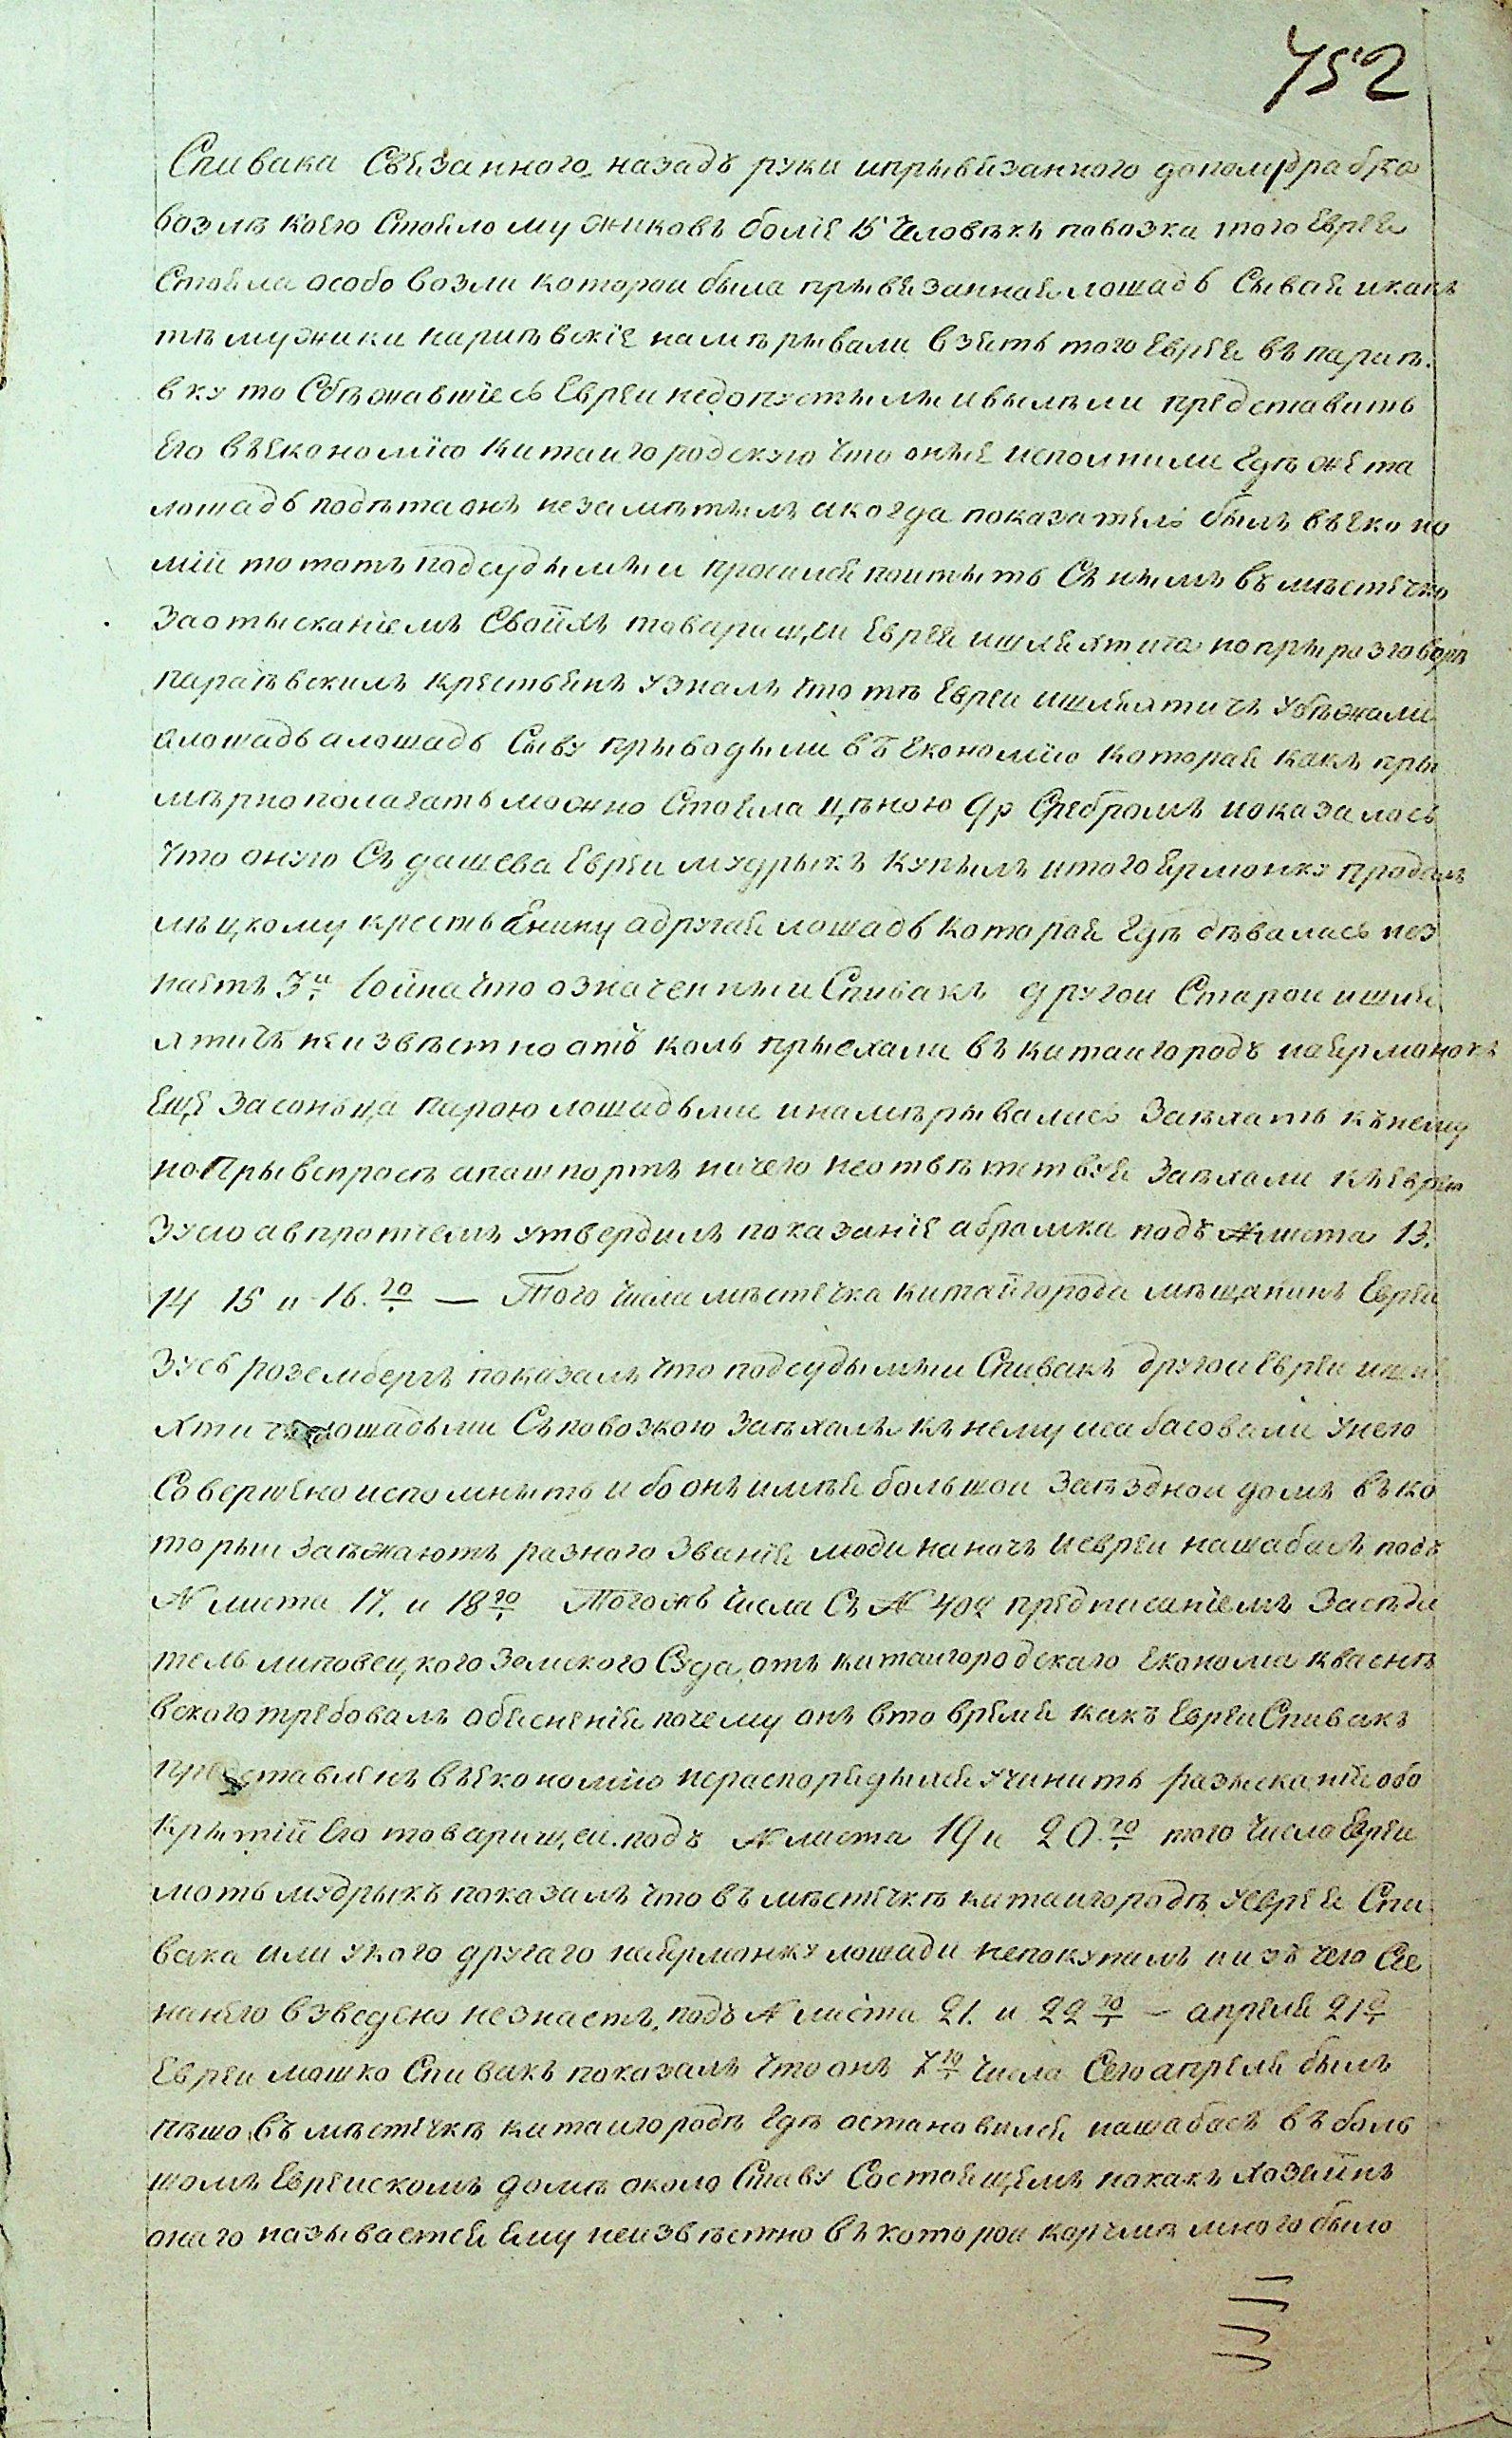 752
Спивака Свезанного назадъ руки ипрывезанного дополудрабка
возлѣ коего Стояло мужиковъ болѣе 15 Человѣкъ повозка того Еврея
Стояла особо возли которои была прывезанная лошадь Сывая икакъ
тѣ мужики париевскіе намѣрывали взять того Еврея въ парие.
вку то Сбѣжавшiесь Евреи недопустыли ивылѣли представить
Его въЕкономiю Китаигородскую Что оные исполнили Гдѣ же та
лошадь подѣта онъ незамѣтылъ акогда показатель былъ въЕконо
мiи то тотъ подсудымыи просился поитыть Съ нымъ въ мѣстечко
Заотысканiемъ Своихъ товарищеи Еврея ишляхтича но прыразговорѣ
париевскихъ крестьянъ узналъ Что тѣ Евреи ишляхтичъ Убѣжали
алошадь алошадь Сыву прыводыли въ Економiю Которая какъ пры
мѣрно полагать можно Стоила цѣною 9р Сребромъ иоказалось
Что оную Съ дашева Евреи мудрыкъ купылъ итого Ярмонку продалъ
мѣцкому крестьЯнину адругая лошадь Которая Гдѣ дѣвалась нез
наетъ 3и Война Что означенныи Спивакъ другои Старои ишля
хтичъ неизвѣстно отъ коль прыехали въ китаигородъ наЯрмонокъ
Еще Засоньца парою лошадьми инамѣрывались Заехать кънему
но Прывспросѣ апашпортъ ничего неотвѣтствуя Заехали къЕврею
Зусю авпротчемъ утвердилъ показанiе абрамка подъ № листа 13.
14 15 и 16.го — Того Числа мѣстечка китайгорода мѣщанинъ Евреи
Зусь роземберъ показалъ Что подсудымыи Спивакъ другои Евреи ишл
яхтичъ лошадьми Съповозкою Заехалъ къ нему иза басовали Унего
Совершено испомныть ибо онъ имѣя большои Заездной домъ въ ко
торыи Заежаютъ разного Званiя люди наночъ иевреи нашабасъ подъ
№ листа 17. и 18го Тогожъ Числа Съ № 402 предписанiемъ Засѣда
тель липовецкого Земского Суда отъ китаигородскаго Економа квасне
вского требовалъ обясненiя почему онъ вто время какъ Евреи Спивакъ
представленъ въЕкономiю нераспорядылся учинить разысканiя обо
Крытiи Его товарищеи. подъ № листа 19 и 20.го того Числа Евреи
моть мудрыкъ показалъ Что въ мѣстечкѣ китаигородѣ уеврея Спи
вака или укого другаго наЯрмонку лошади непокупалъ и изъ Чего Сie
нанего взведено незнаетъ. подъ № листа 21. и 22го — апреля 21д
Евреи мошко Спивакъ показалъ Что онъ 7го Числа Сего апреля былъ
пѣшо въ мѣстечкѣ китаигородѣ Гдѣ остановился нашабасъ въ боль
шомъ Евреискомъ домѣ около Ставу Состоящемъ нокакъ Хозяинъ
онаго называется Ему неизвѣстно въ которои корчмѣ много было